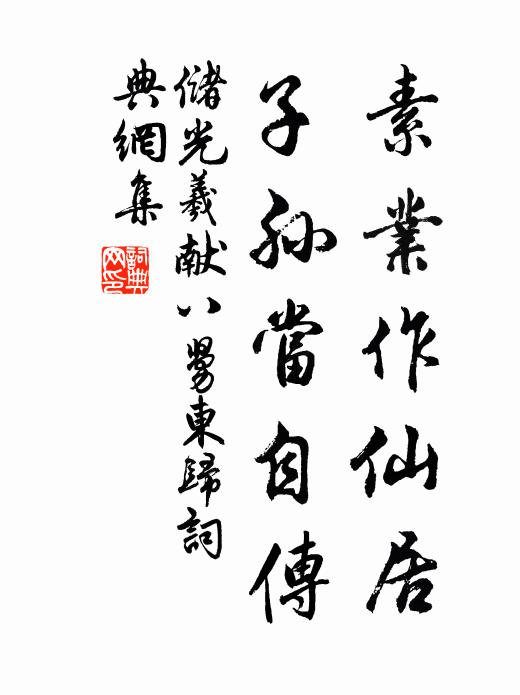 素業作仙居
子孫當自傳
儲光羲献八舅東歸詞
典網集
詞典
网印